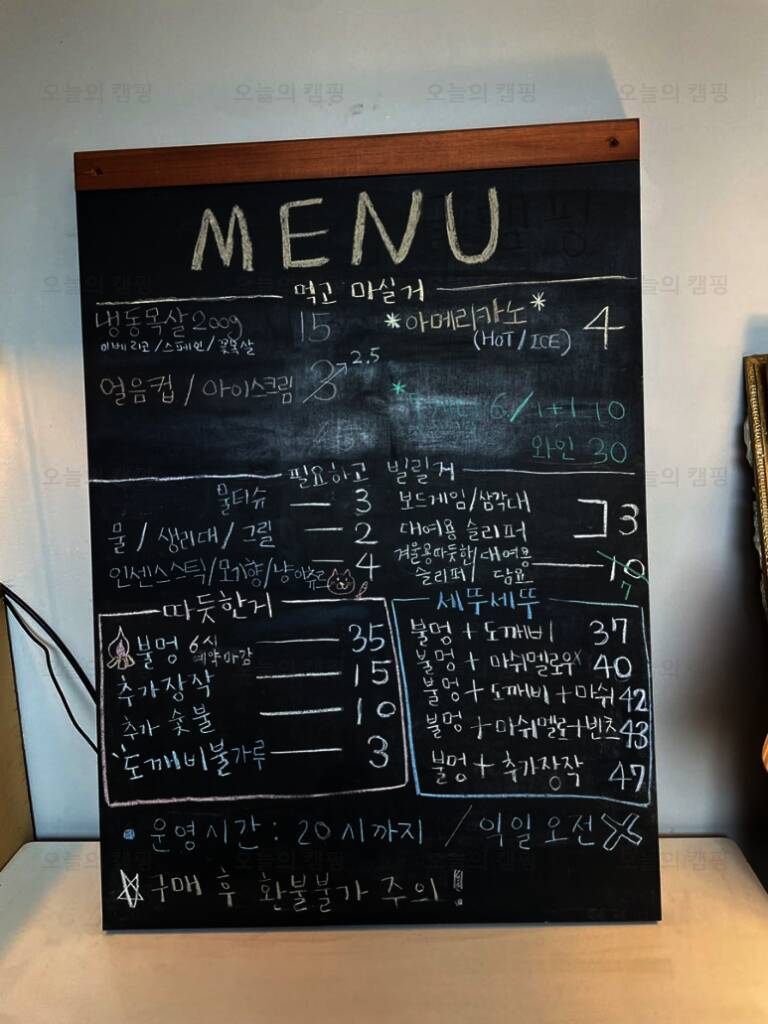 MENU
먹고 마실거
냉동목살 200g 15
이베리코/스페인/꽃목살
얼음컵 / 아이스크림 3 → 2.5
*아메리카노* 4
(HOT / ICE)
* 6 / 1+1 10
와인 30
필요하고 빌릴거
물티슈 3
물 / 생리대 / 그릴 2
인센스스틱/모기향/냥이츄르 4
보드게임/삼각대
대여용 슬리퍼 3
겨울용따뜻한/대여용
슬리퍼/ 담요 10 7
따뜻한거
불멍 6시 예약마감 35
추가장작 15
추가 숯불 10
도깨비불가루 3
세뚜세뚜
불멍 + 도깨비 37
불멍 + 마쉬멜로우x 40
불멍 + 도깨비 + 마쉬 42
불멍 + 마쉬멜로+빈츠 43
불멍 + 추가장작 47
• 운영시간 : 20시까지 / 익일오전X
☆구매 후 환불불가 주의!
오늘의 캠핑